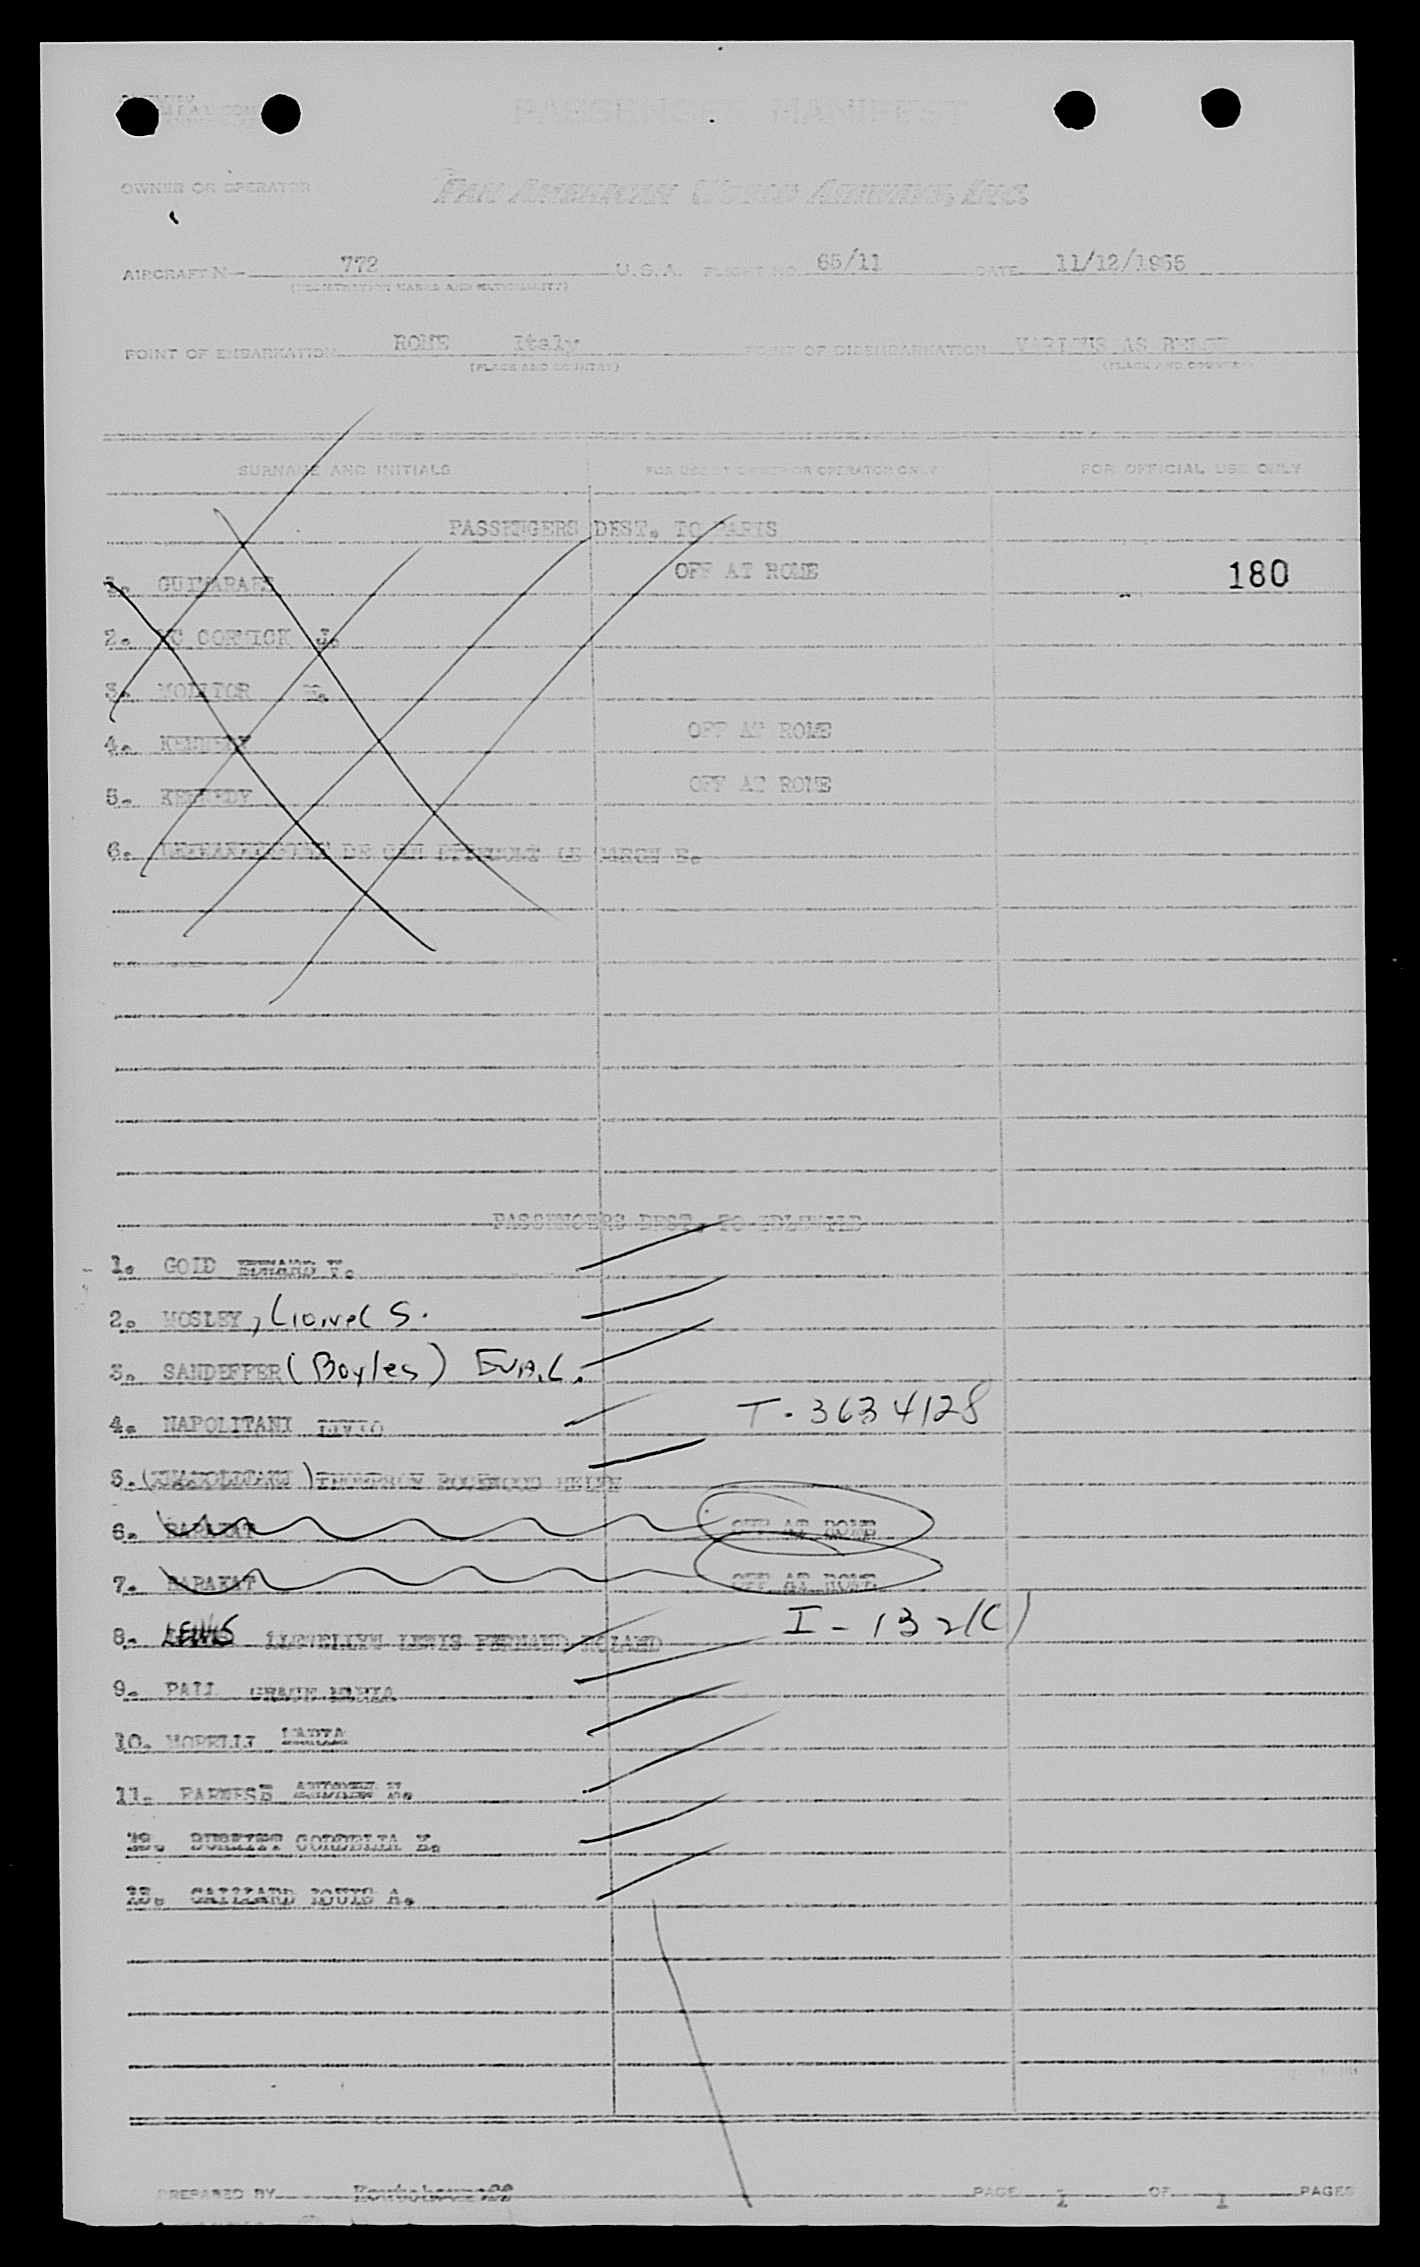 PASSENGER MANIFEST
OWNER OR OPERATOR PAN AMERICAN WORLD AIRWAYS, INC.
AIRCRAFT N 772 U.S.A. FLIGHT NO. 65/11 DATE 11/12/1955
(REGISTRATION MARKS AND NATIONALITY)
POINT OF EMBARKATION ROME Italy POINT OF DISEMBARKATION VARIOUS AS BELOW
(PLACE AND COUNTRY) (PLACE AND COUNTRY)
SURNAME AND INITIALS FOR USE BY OWNER OR OPERATOR ONLY FOR OFFICIAL USE ONLY
PASSENGERS DEST. TO PARIS
1. GUIMARAES OFF AT ROME 180
2. MC CORMICK J.
3. MOLITOR
4. KENNEDY OFF AT ROME
5. KENNEDY OFF AT ROME
6.
PASSENGERS DEST. TO IDLEWILD
1. GOLD EDWARD V.
2. MOSLEY, Lionel S.
3. SANDEFFER (Boyles) Eva.L.
4. NAPOLITANI LIVIO T-3634128
5. (NAPOLITANI) THOMPSON HELEN
6. BARAKAT OFF AT ROME
7. BARAKAT OFF AT ROME
8. LEWIS LLEWELLYN LEWIS FERNAND ROLAND I-132(C)
9. PALL MARIA
10. MORELLI MARIA
11. FARNESE H.
12. CORDELIA K.
13. GAILLARD LOUIS A.
PREPARED BY PAGE 1 OF 1 PAGES